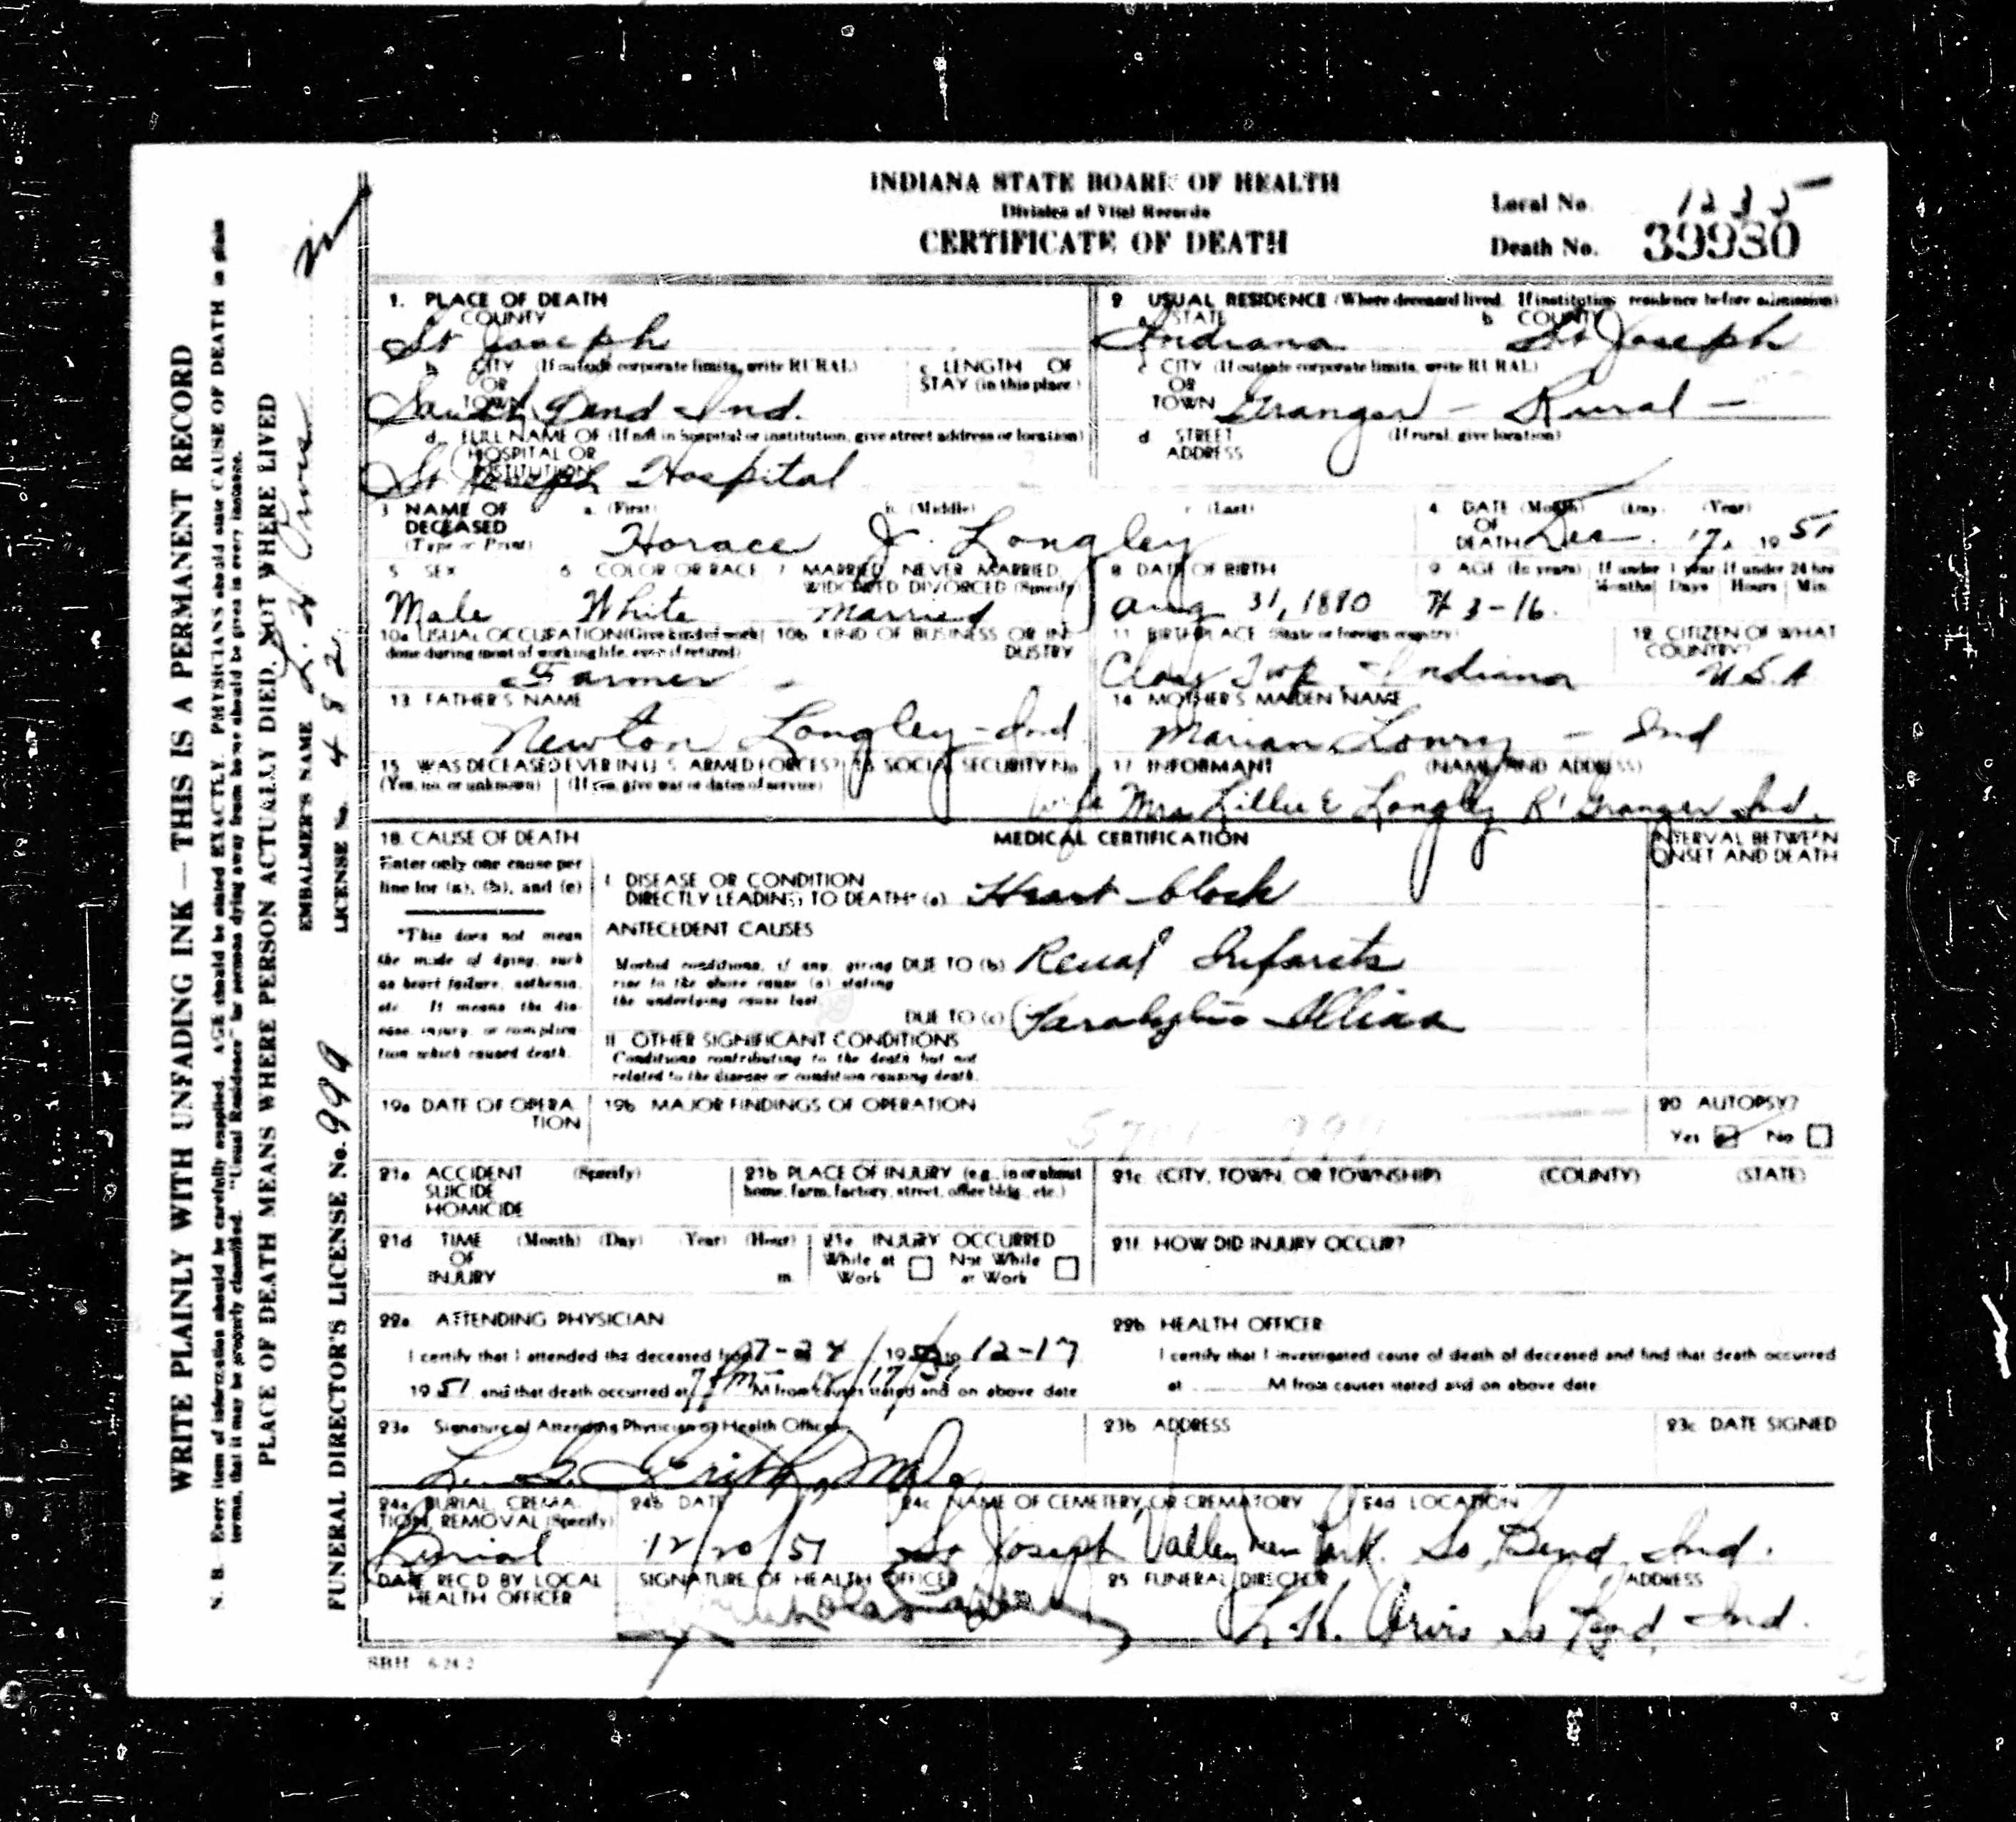 INDIANA STATE BOARD OF HEALTH
Division of Vital Records
CERTIFICATE OF DEATH
Local No. 1235
Death No. 39930
WRITE PLAINLY WITH UNFADING INK — THIS IS A PERMANENT RECORD
N. B. Every item of information should be carefully supplied. AGE should be stated EXACTLY. PHYSICIANS should state CAUSE OF DEATH in plain
terms, that it may be properly classified. "Usual Residence" for persons dying away from home should be given in every instance.
PLACE OF DEATH MEANS WHERE PERSON ACTUALLY DIED, NOT WHERE LIVED
EMBALMER'S NAME L. H.
LICENSE No. 482
FUNERAL DIRECTOR'S LICENSE No. 999
1. PLACE OF DEATH
a. COUNTY
St Joseph
b. CITY (If outside corporate limits, write RURAL)
OR
TOWN
South Bend Ind.
c. LENGTH OF
STAY (in this place)
d. FULL NAME OF (If not in hospital or institution, give street address or location)
HOSPITAL OR
INSTITUTION
St Joseph Hospital
2 USUAL RESIDENCE (Where deceased lived. If institution residence before admission)
a. STATE b. COUNTY
Indiana St Joseph
c. CITY (If outside corporate limits, write RURAL)
OR
TOWN Granger - Rural -
d. STREET (If rural, give location)
ADDRESS
3 NAME OF a. (First) b. (Middle) c. (Last)
DECEASED
(Type or Print)
Horace J. Longley
4. DATE (Month) (Day) (Year)
OF
DEATH Dec. 17, 1951
5 SEX
Male
6 COLOR OR RACE
White
7 MARRIED, NEVER MARRIED,
WIDOWED, DIVORCED (Specify)
Married
8 DATE OF BIRTH
Aug 31, 1880
9 AGE (In years) If under 1 year If under 24 hrs
Months Days Hours Min
3-16
10a USUAL OCCUPATION (Give kind of work
done during most of working life, even if retired)
Farmer
10b KIND OF BUSINESS OR IN-
DUSTRY
11 BIRTHPLACE (State or foreign country)
Clay Twp - Indiana
12 CITIZEN OF WHAT
COUNTRY?
U.S.A
13 FATHER'S NAME
Newton Longley - Ind
14 MOTHER'S MAIDEN NAME
Marian Lowry - Ind
15 WAS DECEASED EVER IN U. S. ARMED FORCES?
(Yes, no, or unknown) (If yes, give war or dates of service)
16 SOCIAL SECURITY No.
17 INFORMANT (NAME AND ADDRESS)
wife Mrs Lillie E Longley R1 Granger Ind.
18. CAUSE OF DEATH
Enter only one cause per
line for (a), (b), and (c)
*This does not mean
the mode of dying, such
as heart failure, asthenia,
etc. It means the dis-
ease, injury, or complica-
tion which caused death.
MEDICAL CERTIFICATION
INTERVAL BETWEEN
ONSET AND DEATH
I DISEASE OR CONDITION
DIRECTLY LEADING TO DEATH* (a) Heart block
ANTECEDENT CAUSES
Morbid conditions, if any, giving
rise to the above cause (a) stating
the underlying cause last.
DUE TO (b) Renal Infarcts
DUE TO (c) Paralytic
II OTHER SIGNIFICANT CONDITIONS
Conditions contributing to the death but not
related to the disease or condition causing death.
19a DATE OF OPERA-
TION
19b MAJOR FINDINGS OF OPERATION
20 AUTOPSY?
Yes No
21a ACCIDENT (Specify)
SUICIDE
HOMICIDE
21b PLACE OF INJURY (e.g., in or about
home, farm, factory, street, office bldg., etc.)
21c (CITY, TOWN, OR TOWNSHIP) (COUNTY) (STATE)
21d TIME (Month) (Day) (Year) (Hour)
OF
INJURY m.
21e INJURY OCCURRED
While at Work Not While at Work
21f. HOW DID INJURY OCCUR?
22a ATTENDING PHYSICIAN
I certify that I attended the deceased from 19 to 12-17
1951 and that death occurred at M from causes stated and on above date
22b HEALTH OFFICER
I certify that I investigated cause of death of deceased and find that death occurred
at M from causes stated and on above date
23a Signature of Attending Physician or Health Officer
23b ADDRESS
23c DATE SIGNED
24a BURIAL, CREMA-
TION, REMOVAL (Specify)
Burial
24b DATE
12/20/51
24c NAME OF CEMETERY OR CREMATORY
St Joseph Valley Mem Park.
24d LOCATION
So Bend, Ind.
DATE REC'D BY LOCAL
HEALTH OFFICER
SIGNATURE OF HEALTH OFFICER
25 FUNERAL DIRECTOR ADDRESS
L. H. Orvis So Bend, Ind.
SBH 6-24-2